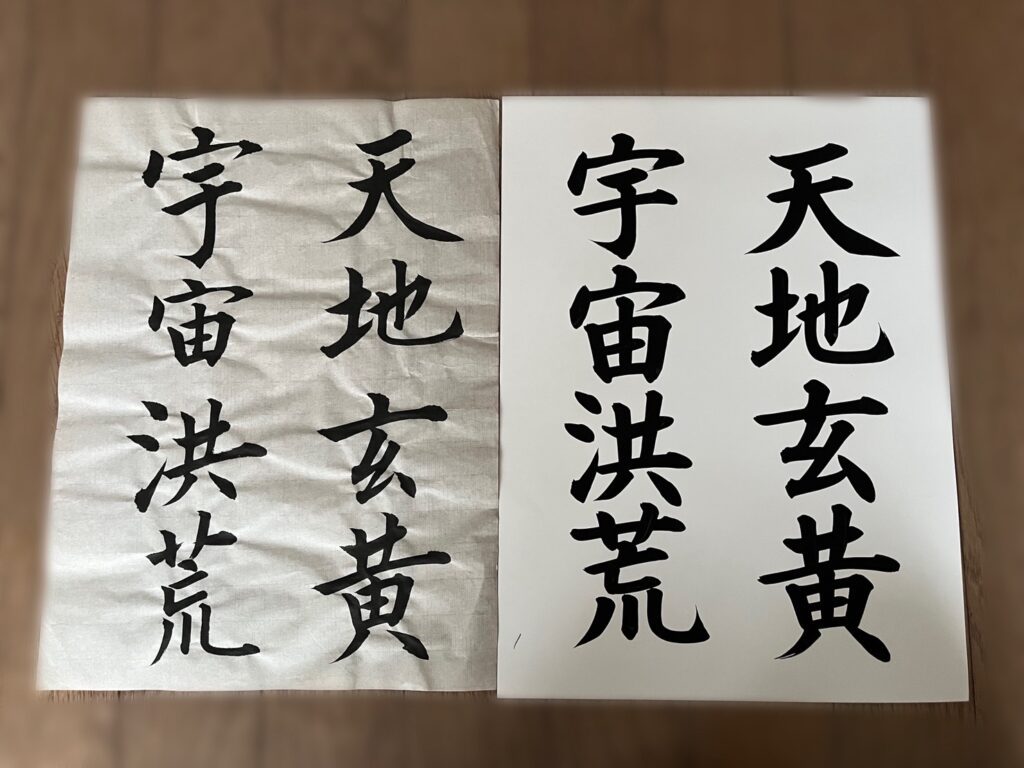 天地玄黄
宇宙洪荒
天地玄黄
宇宙洪荒